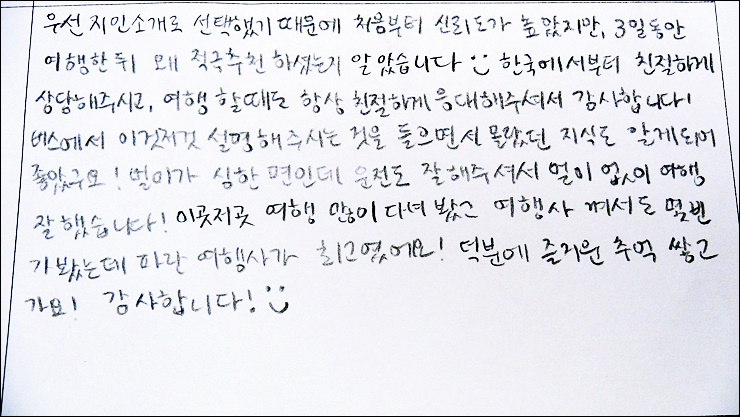 우선 지인소개로 선택했기 때문에 처음부터 신뢰도가 높았지만, 3일동안
여행한 뒤 왜 적극추천 하셨는지 알았습니다 :) 한국에서부터 친절하게
상담해주시고, 여행 할때도 항상 친절하게 응대해주셔서 감사합니다!
버스에서 이것저것 설명해주시는 것을 들으면서 몰랐던 지식도 알게되어
좋았구요! 멀미가 심한 편인데 운전도 잘해주셔서 멀미 없이 여행
잘했습니다! 이곳저곳 여행 많이 다녀 봤고 여행사 껴서도 몇번
가봤는데 파란 여행사가 최고였어요! 덕분에 즐거운 추억 쌓고
가요! 감사합니다! :)